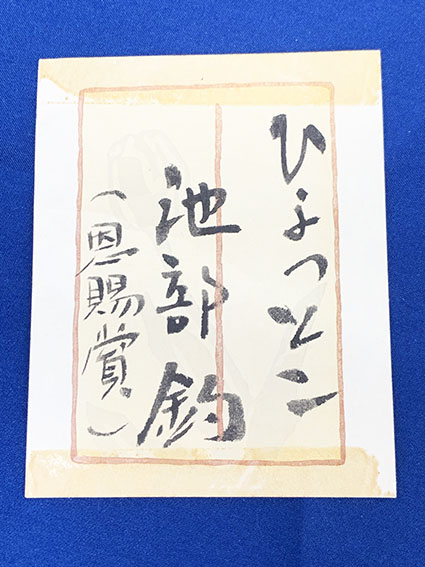 ひょっとこ
池部鈞
(恩賜賞)